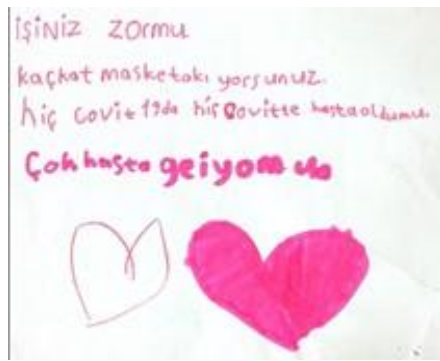 işiniz zormu
kaçkat maske takı yorsunuz.
hiç covit 19da hiç covitte hasta oldumu.
Çok hasta geiyom